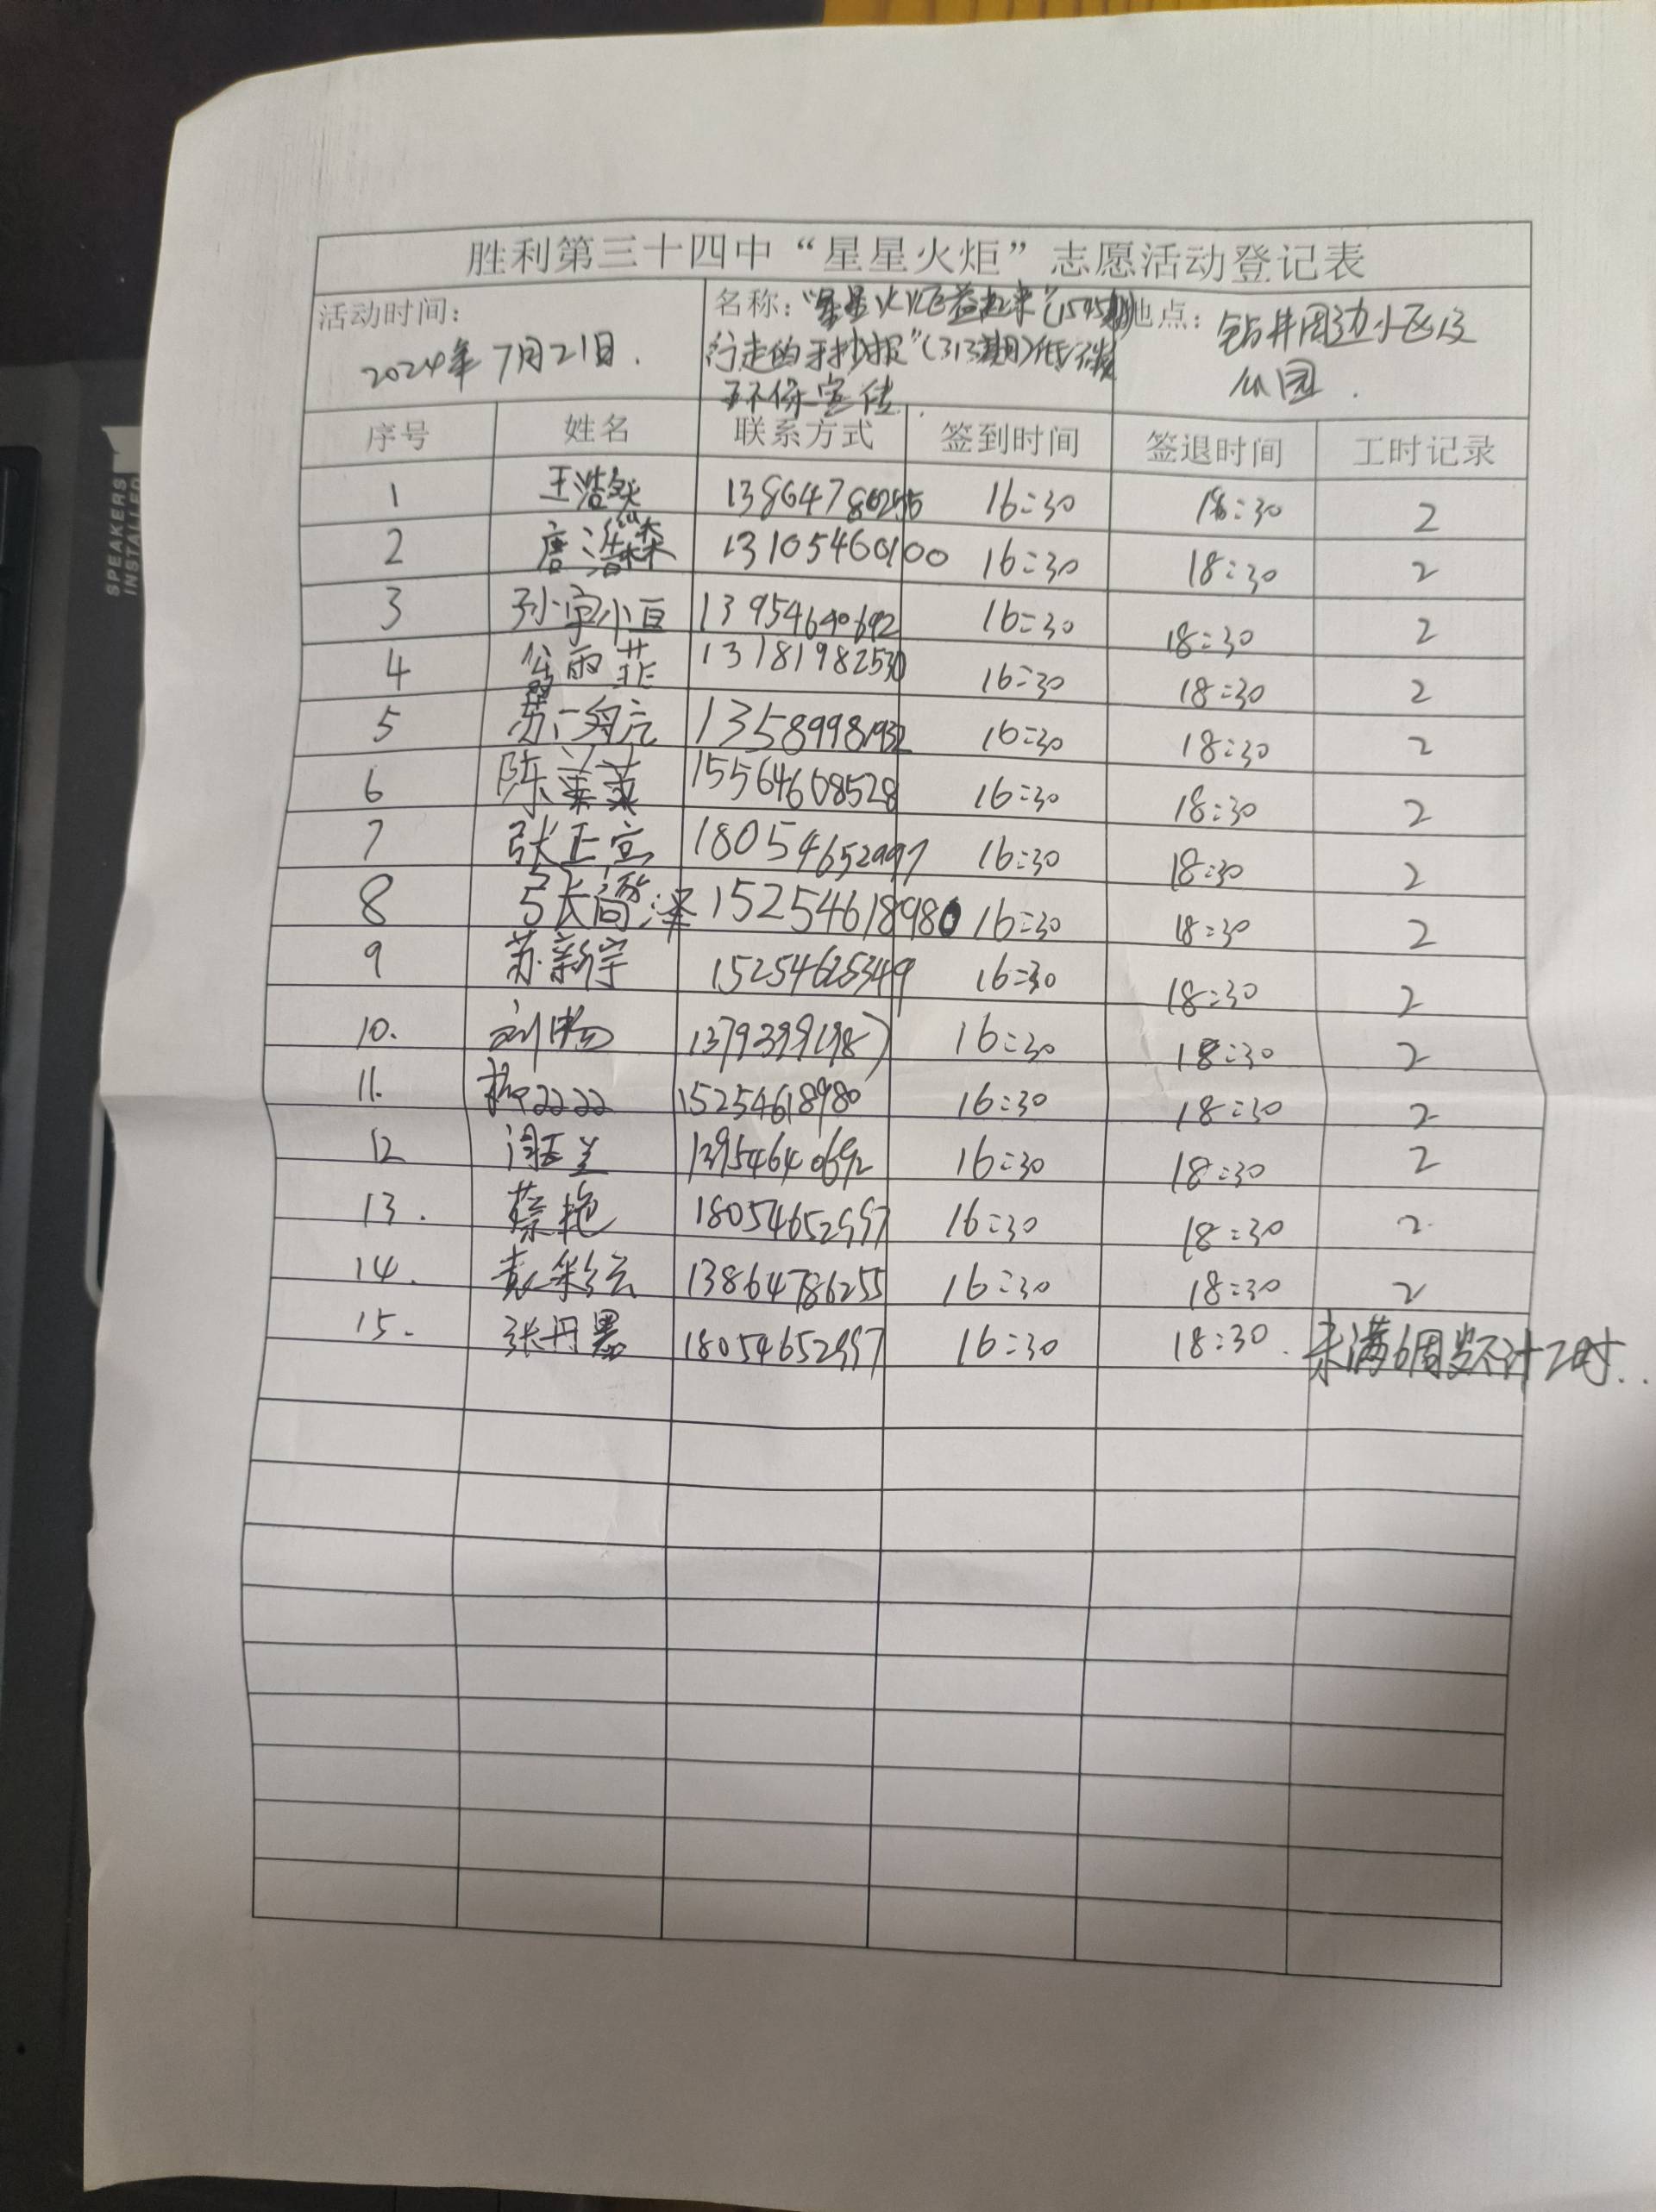 SPEAKERS
INSTALLED
胜利第三十四中“星星火炬”志愿活动登记表
活动时间: 名称: “星星火炬益起来”(1545期) 地点: 钻井周边小区及
2024年7月21日. 行走的手抄报”(313期)低碳 公园.
环保宣传.
序号 姓名 联系方式 签到时间 签退时间 工时记录
1 王浩然 13864786255 16:30 18:30 2
2 唐浩森 13105460100 16:30 18:30 2
3 孙宁小豆 13954640692 16:30 18:30 2
4 雨菲 13181982530 16:30 18:30 2
5 苏 13589981932 16:30 18:30 2
6 陈 15564608528 16:30 18:30 2
7 张正宜 18054652997 16:30 18:30 2
8 张 泽 15254618980 16:30 18:30 2
9 苏新宇 15254625349 16:30 18:30 2
10. 刘 16:30 18:30 2
11. 15254618980 16:30 18:30 2
12 兰 13954640692 16:30 18:30 2
13. 蔡艳 18054652997 16:30 18:30 2
14. 彩云 13864786255 16:30 18:30 2
15. 张丹 18054652997 16:30 18:30. 未满6周岁不计工时..